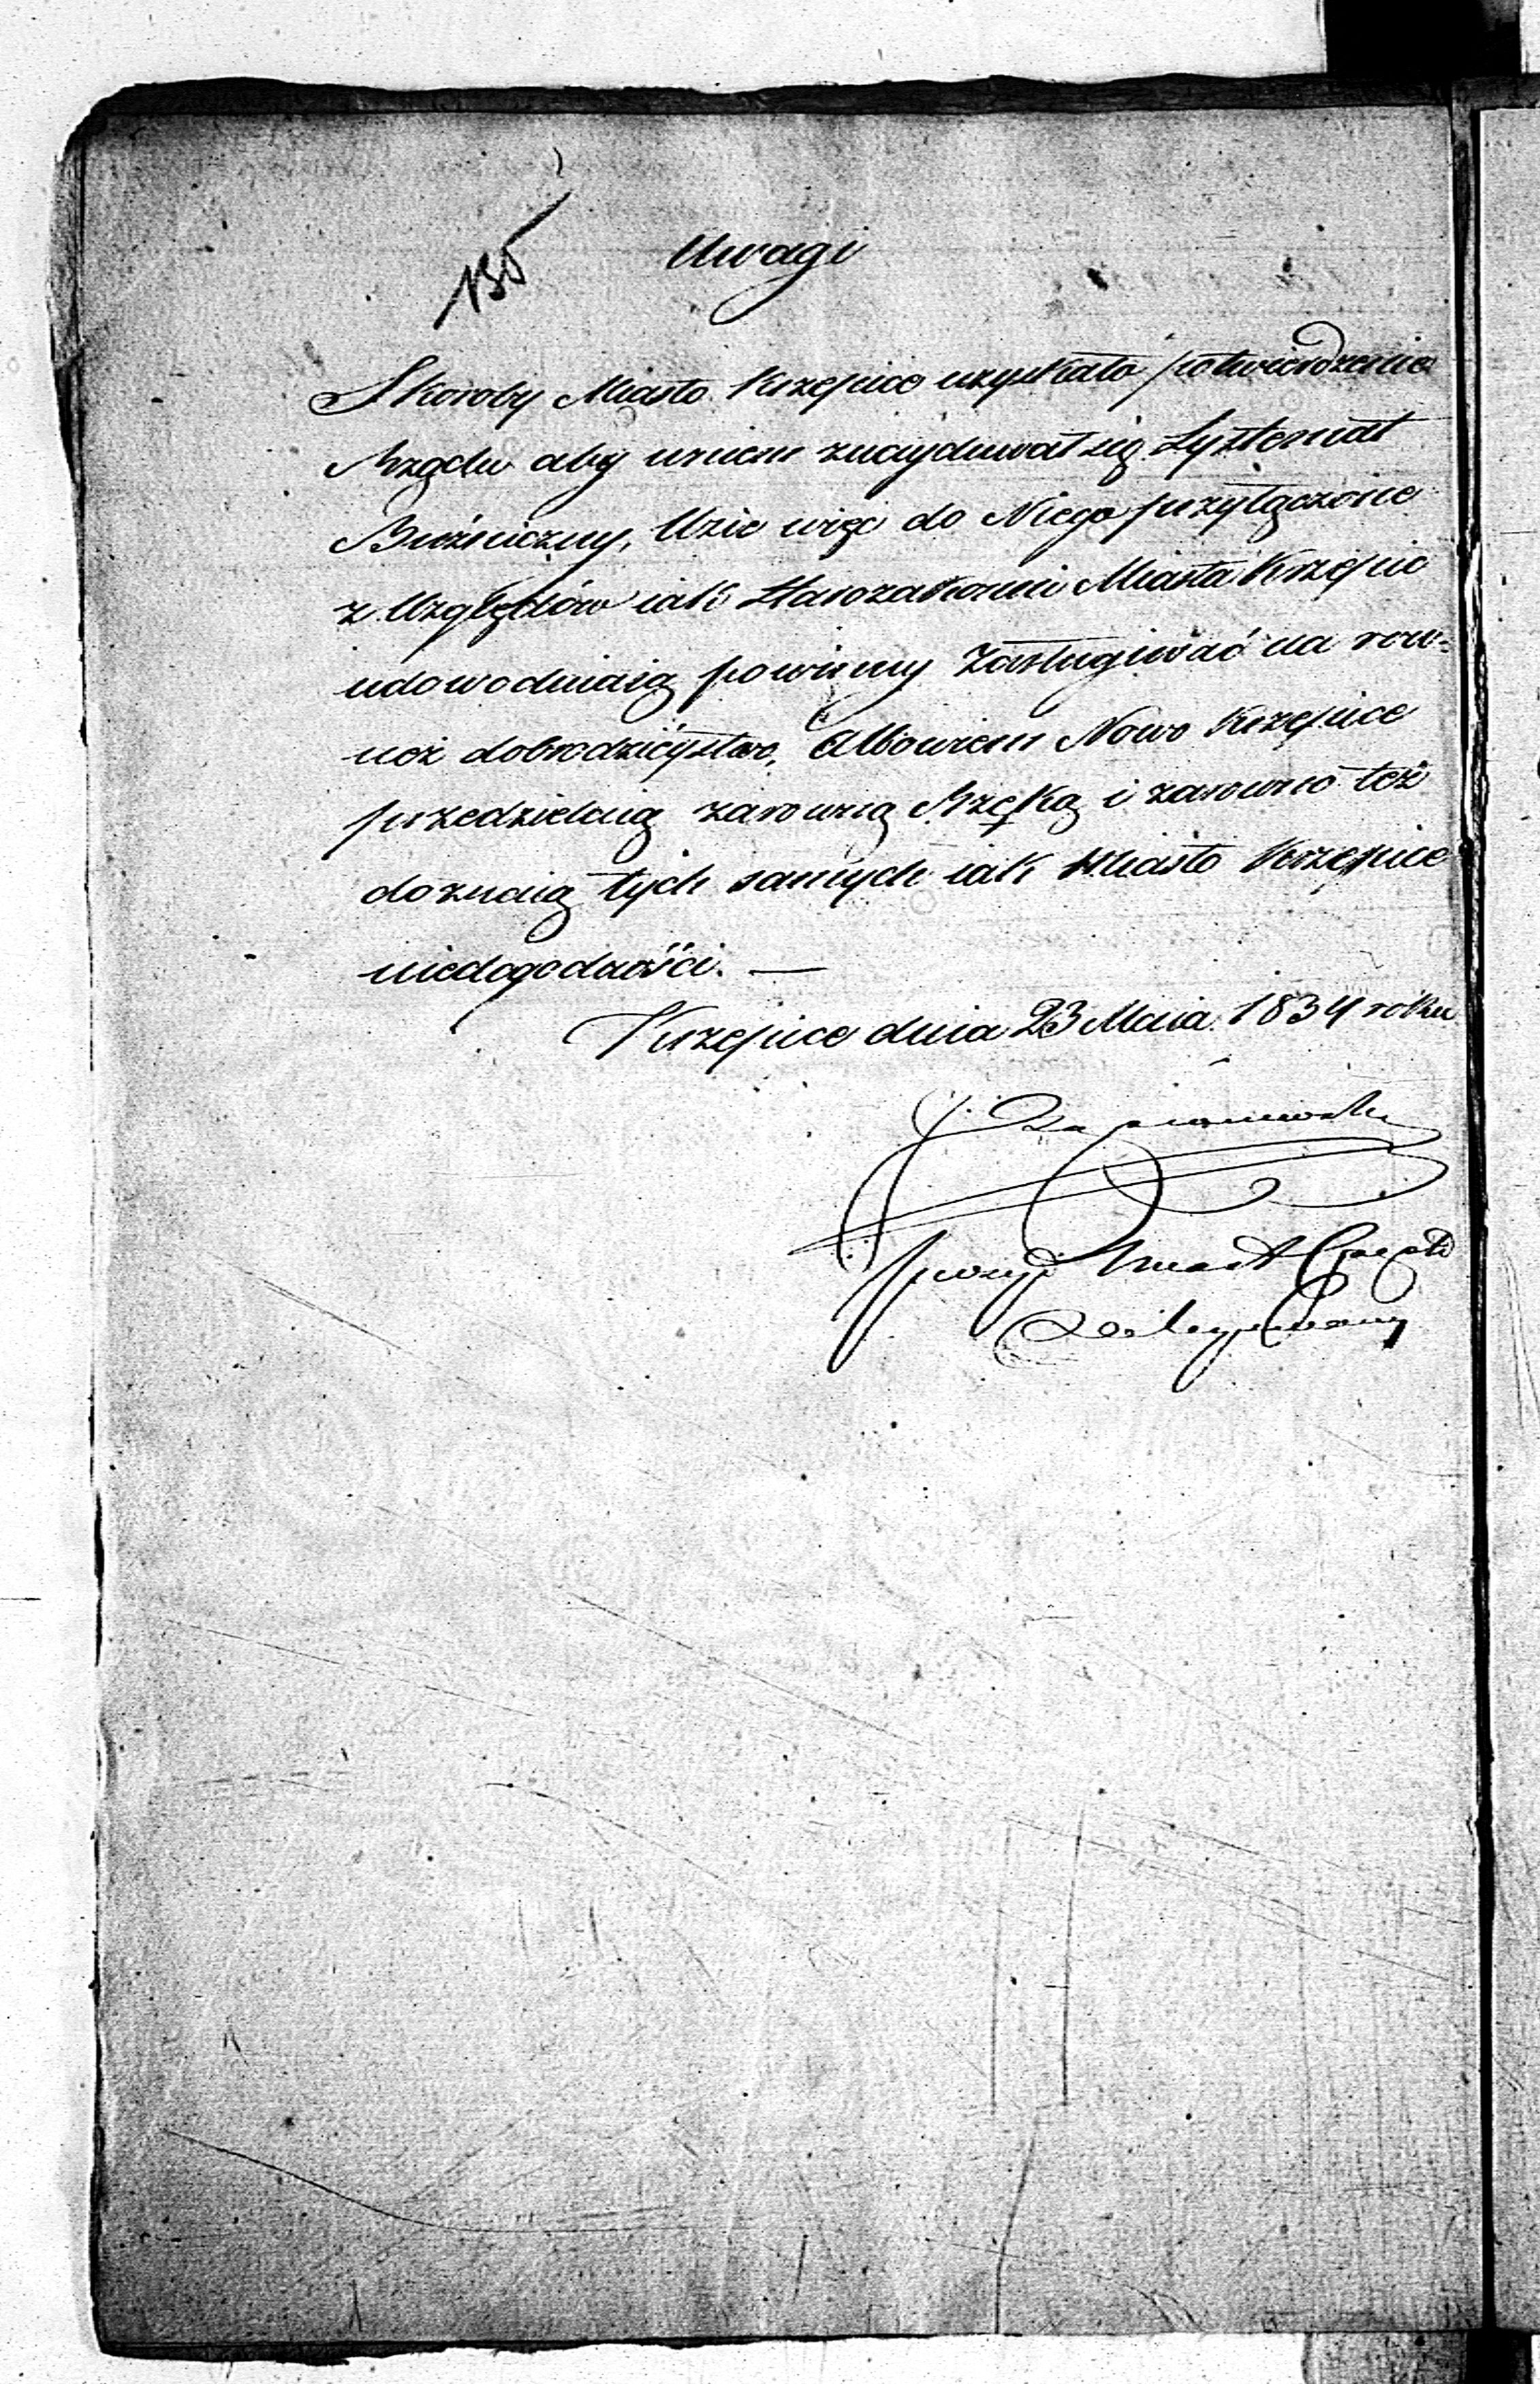 135
Uwagi
Skoroby Miasto Krzepice uzyskało potwierdzenie
Rządu aby wniem znaydował się Zysztemat
Bużniczny, Uzie więc do Niego przyłączone
z Względów iak Starozakonni Miasta Krzepic
udowodniaią powinny Zasługiwać na row=
nez dobrodzieystwo, Albowiem Nowo Krzepice
przedzielaią zarowną Rzęką i zarowno też
doznaią tych samych iak Miasto Krzepice
niedogodności. —
Krzepice dnia 23 Maia 1834 roku
Miast
Delegowany